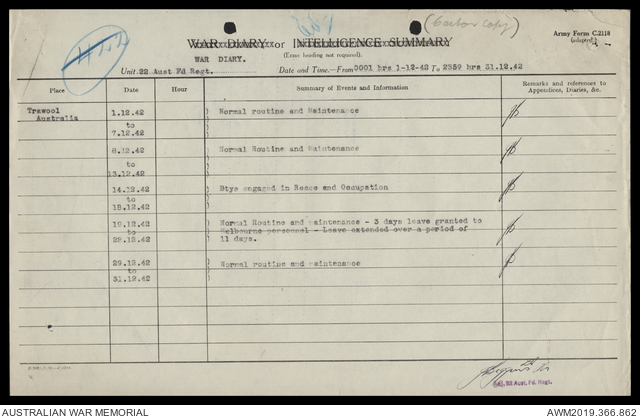 (Carbon Copy)
WAR DIARY or INTELLIGENCE SUMMARY
Army Form C.2118
(adapted)
(Erase heading not required).
WAR DIARY.
Unit. 22 Aust Fd Regt. Date and Time.—From 0001 hrs 1-12-42 To 2359 hrs 31.12.42
Place Date Hour Summary of Events and Information Remarks and references to
Appendices, Diaries, &c.
Trawool 1.12.42 ) Normal routine and Maintenance
Australia to
7.12.42
8.12.42 ) Normal Routine and Maintenance
to
13.12.42
14.12.42 ) Btys engaged in Recce and Occupation
to
18.12.42
19.12.42 ) Normal Routine and maintenance - 3 days leave granted to
to Melbourne personnel - Leave extended over a period of
28.12.42 11 days.
29.12.42 ) Normal routine and maintenance
to
31.12.42
22 Aust. Fd. Regt.
AUSTRALIAN WAR MEMORIAL
AWM2019.366.862